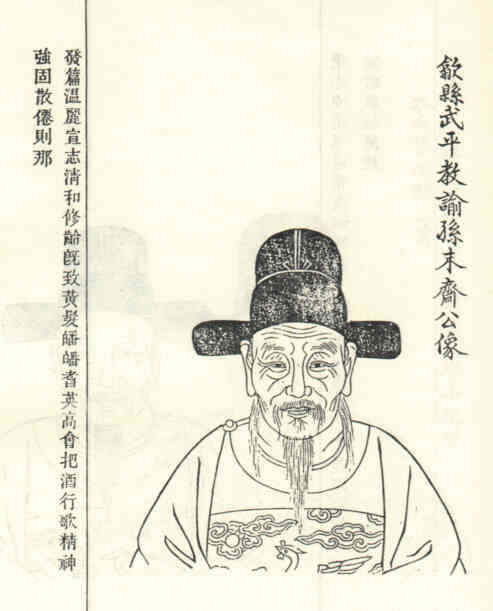 歙縣武平教諭孫末齋公像
發篇溫麗宣志清和修齡旣致黃髮皤皤耆英高會把酒行歌精神
強固散僊則那